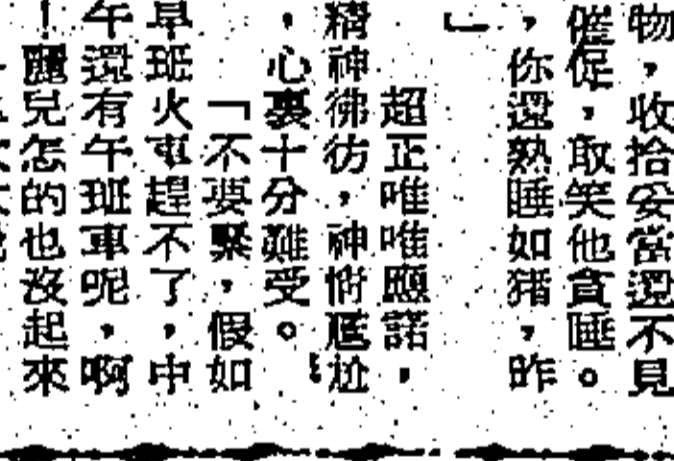 物，收拾妥當還不見
催促，取笑他貪睡。
，你還熟睡如猪，昨
」
超正唯唯應諾，
精神彿彷，神情尷尬
，心裏十分難受。
「不要緊，假如
早班火車趕不了，中
午還有午班車呢，啊
！麗兒怎的也沒起來